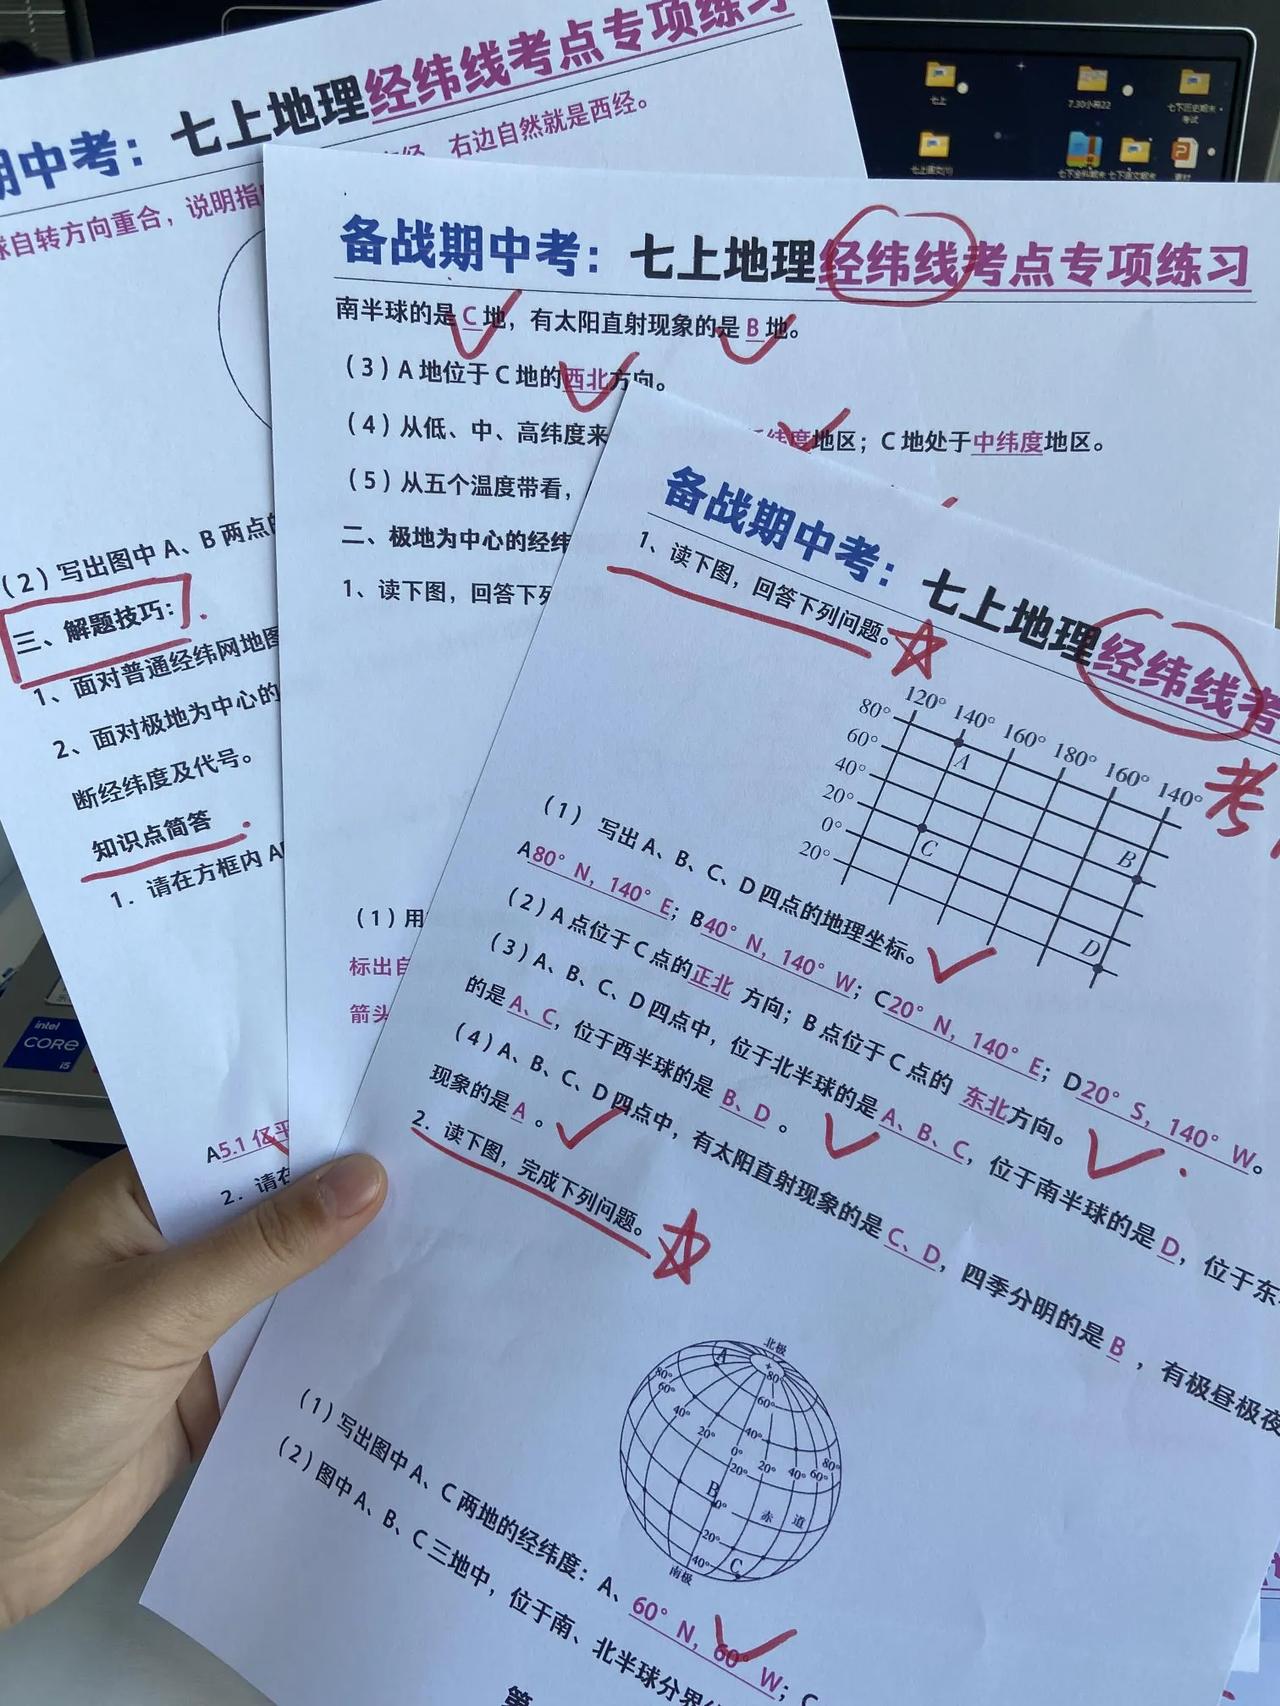 期中考：七上地理经纬线考点专项练习
右边自然就是西经。
球自转方向重合，说明指
（2）写出图中 A、B 两点的
三、解题技巧：
1、面对普通经纬网地图
2、面对极地为中心的
断经纬度及代号。
知识点简答
1. 请在方框内 A
A5.1 亿平
2. 请在
备战期中考：七上地理经纬线考点专项练习
南半球的是 C 地，有太阳直射现象的是 B 地。
（3）A 地位于 C 地的西北方向。
（4）从低、中、高纬度来
纬度地区；C 地处于中纬度地区。
（5）从五个温度带看，
二、极地为中心的经纬
1、读下图，回答下列
（1）用
标出自
箭头
备战期中考：七上地理经纬线考
1、读下图，回答下列问题。
考
120° 140° 160° 180° 160° 140°
80°
60°
40°
20°
0°
20°
A
B
C
D
（1） 写出 A、B、C、D 四点的地理坐标。
A80° N，140° E；B40° N，140° W；C20° N，140° E；D20° S，140° W。
（2）A 点位于 C 点的正北 方向；B 点位于 C 点的 东北方向。
（3）A、B、C、D 四点中，位于北半球的是 A、B、C，位于南半球的是 D，位于东
的是 A、C，位于西半球的是 B、D 。
（4）A、B、C、D 四点中，有太阳直射现象的是 C、D，四季分明的是 B ，有极昼极夜
现象的是 A 。
2. 读下图，完成下列问题。
北极
A
80°
80°
60°
60°
40°
40°
20°
0°
20°
20°
40°
60°
80°
B
0°
赤 道
20°
40°
C
南极
（1）写出图中 A、C 两地的经纬度：A、60° N，60° W；C
（2）图中 A、B、C 三地中，位于南、北半球分界
第
七上
7.30小荷22
七下历史期末考试
七上语文(1)
七下全科期末
七下语文期末
素材
intel
CORE
i5